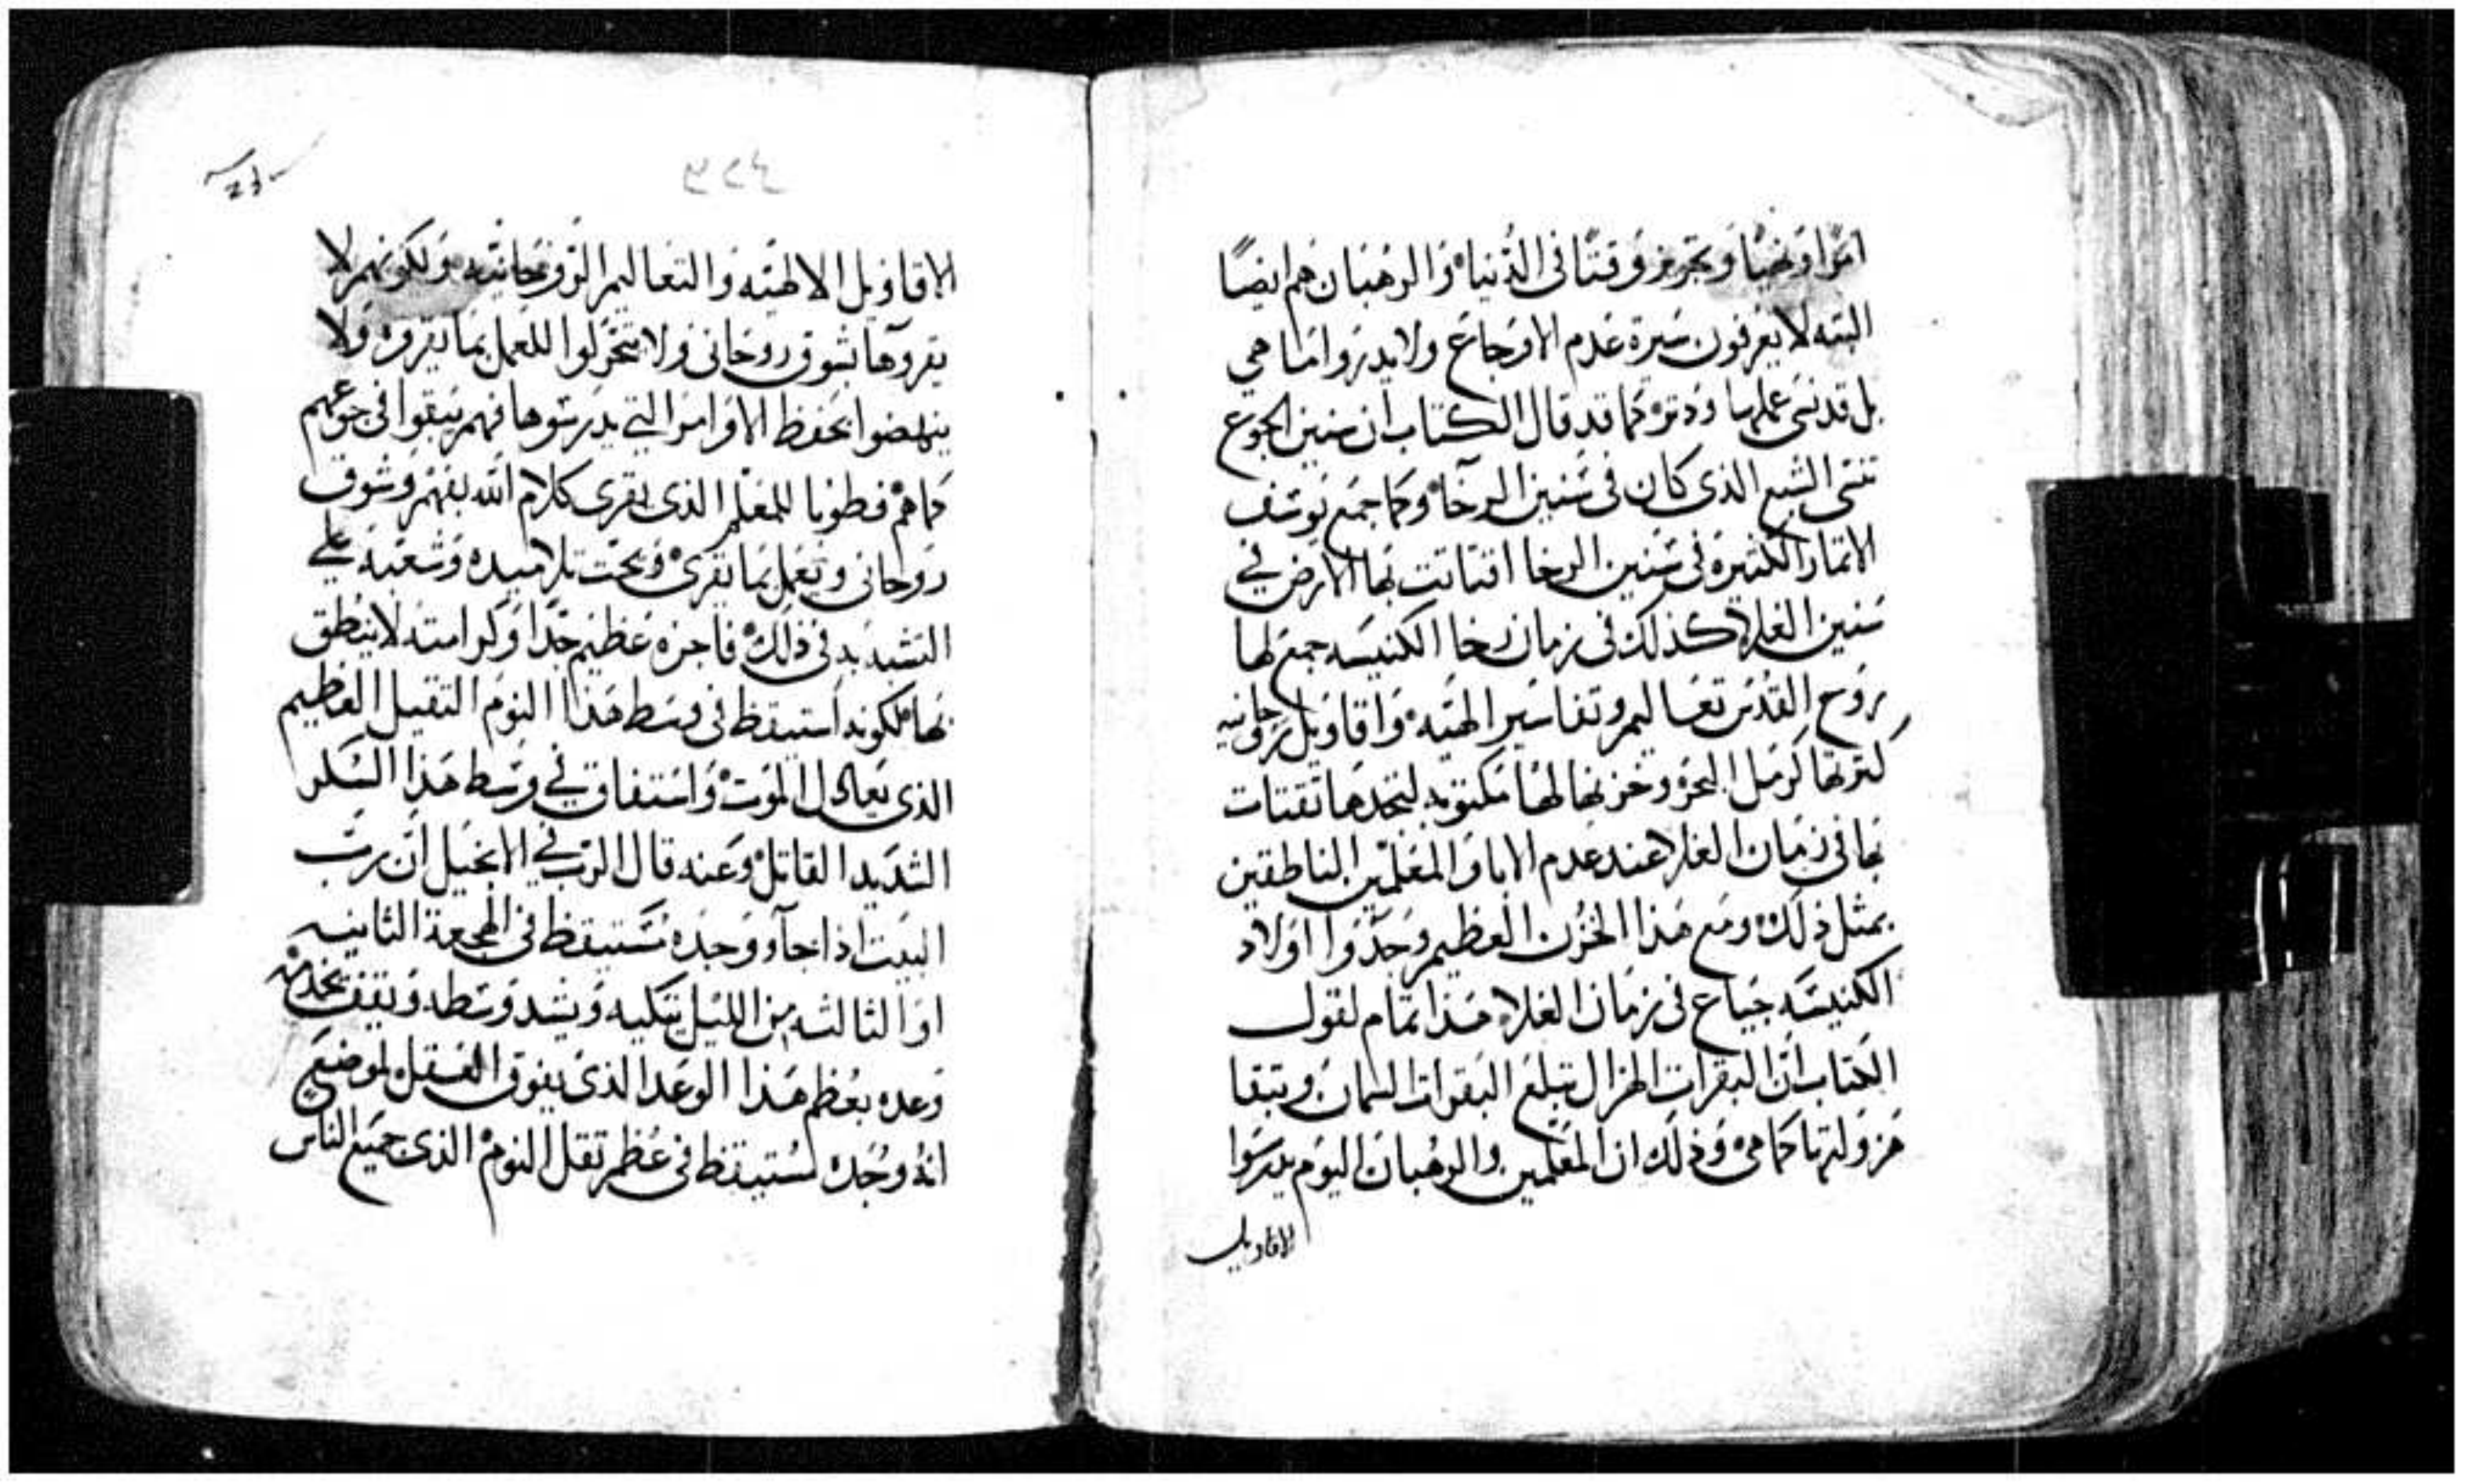 امرا ونهيا وتحريز وقتا فى الدنيا والرهبان هم ايضا
البته لا يعرفون سيرة عدم الاوجاع ولا يدروا ما هي
بل قد نسى عملها ودتر كما قد قال الكتاب ان سنين الجوع
تنسى الشبع الذى كان فى سنين الرخا وكما جمع يوسف
الاتمار الكتيره فى سنين الرخا اقتاتت بها الارض في
سنين الغلا كذلك فى زمان رخا الكنيسه جمع لها
روح القدس تعاليم وتفاسير الهيه واقاويل روحانيه
كترتها كرمل البحر وخزنها لها مكتوبه لتجدها تقتات
بها فى زمان الغلا عند عدم الابا والمعلمين الناطقين
بمثل ذلك ومع هذا الخزن العظيم وجدوا اولاد
الكنيسه جياع فى زمان الغلا هذا تمام لقول
الكتاب ان البقرات الهزال تبلع البقرات السمان وتبقا
هزولتها كما هى وذلك ان المعلمين والرهبان اليوم يدرسوا
الاقاويل
الاقاويل الالهيه والتعاليم الروحانيه ولكونهم لا
يقروها بشوق روحانى ولا يتحركوا للعمل بما يقروه ولا
ينهضوا بحفظ الاوامر التي يدرسوها فهم يبقوا فى جوعهم
كماهم فطوبا للمعلم الذى يقرى كلام الله بفهم وشوق
روحانى ويعمل بما يقرى ويحت تلاميده وشعبه علي
التشديد فى ذلك فاجره عظيم جدا وكرامته لا ينطق
بها لكونه استيقظ فى وسط هذا النوم التقيل العظيم
الذى يعادل الموت واستفاق في وسط هذا السكر
الشديد القاتل وعنه قال الرب في الانجيل ان رب
البيت اذا جآ ووجده مستيقظ فى الهجعة الثانيه
او الثالثه من الليل يتكيه ويشد وسطه ويقف يخدمه
وعده بعظم هذا الوعد الذى يفوق العقل لموضع
انه وجده مستيقظ فى عظم تقل النوم الذى جميع الناس